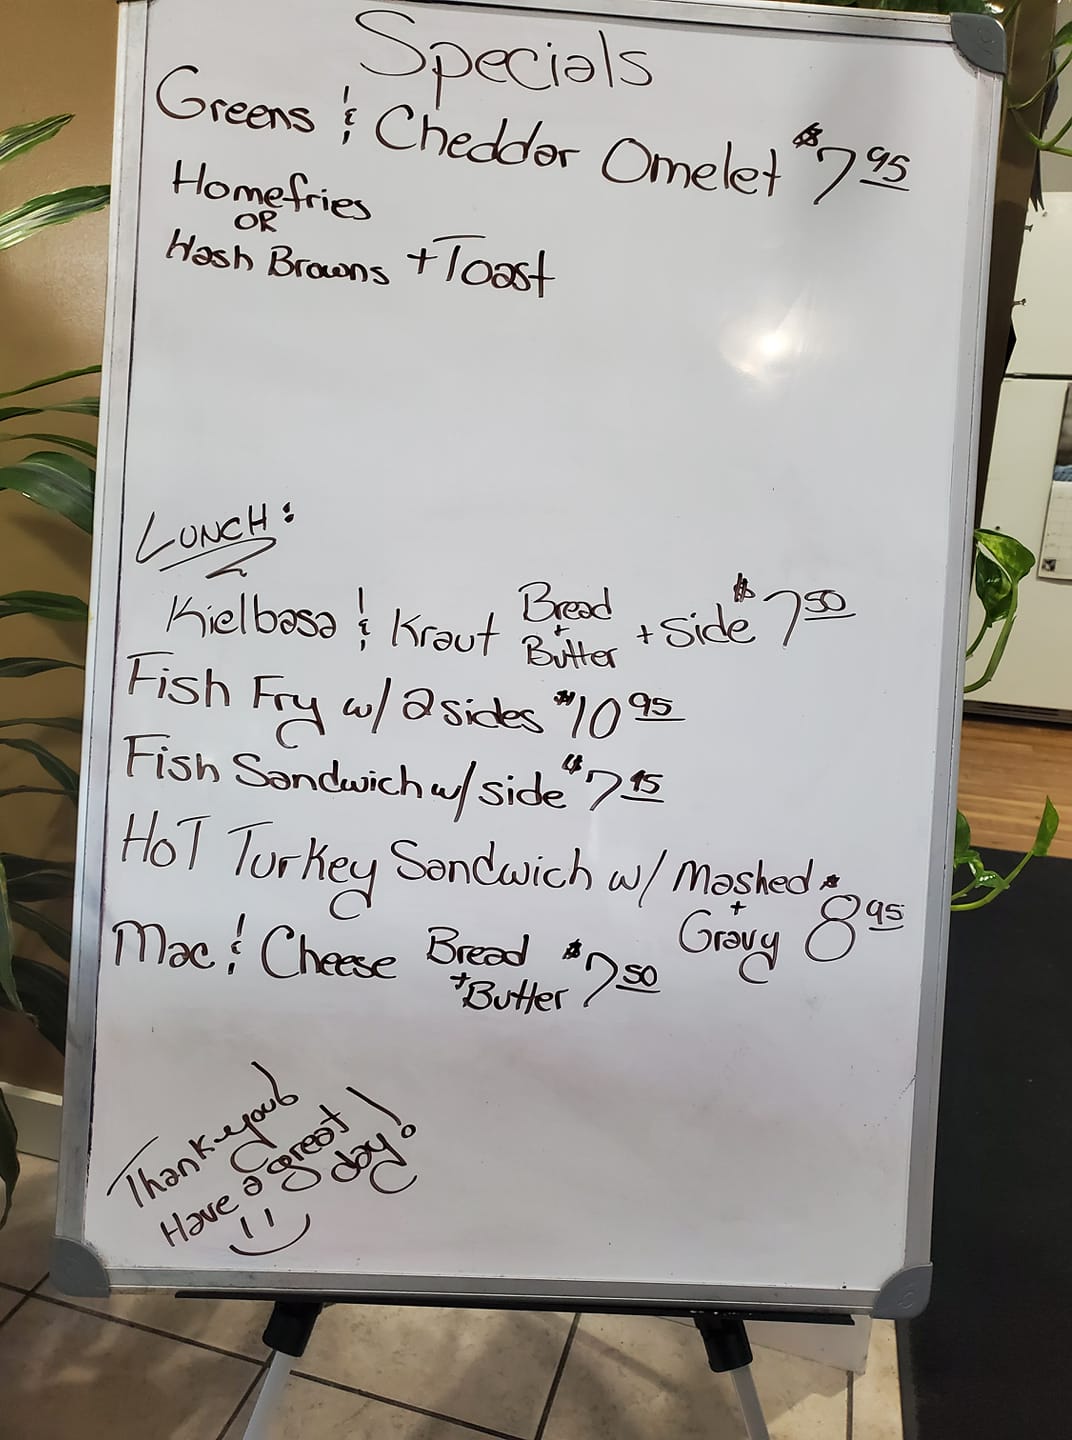 Specials
Greens & Cheddar Omelet $7.95
Homefries
OR
Hash Browns + Toast
LUNCH:
Kielbasa & Kraut Bread + Butter + side $7.50
Fish Fry w/ 2 sides $10.95
Fish Sandwich w/ side $7.95
HOT Turkey Sandwich w/ Mashed + Gravy $8.95
Mac & Cheese Bread + Butter $7.50
Thank you!
Have a great day!